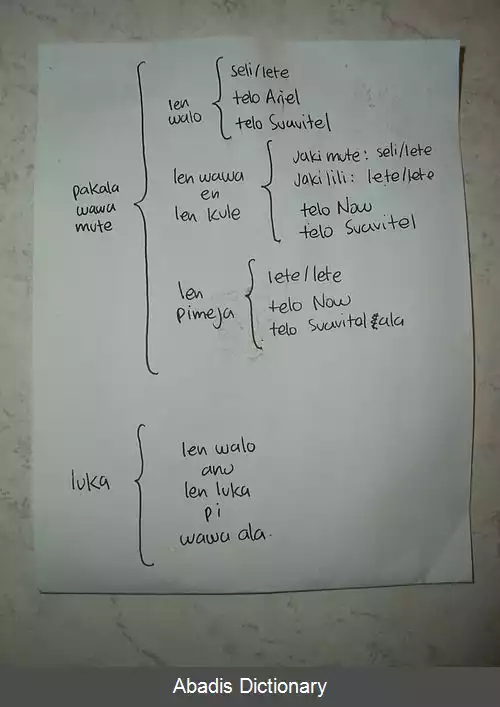 pakala
wawa
mute
len
walo
seli/lete
telo Ariel
telo Suavitel
len wawa
en
len kule
jaki mute: seli/lete
jaki lili: lete/lete
telo Now
telo Suavitel
len
pimeja
lete/lete
telo Now
telo Suavitel ala
luka
len walo
anu
len luka
pi
wawa ala.
Abadis Dictionary